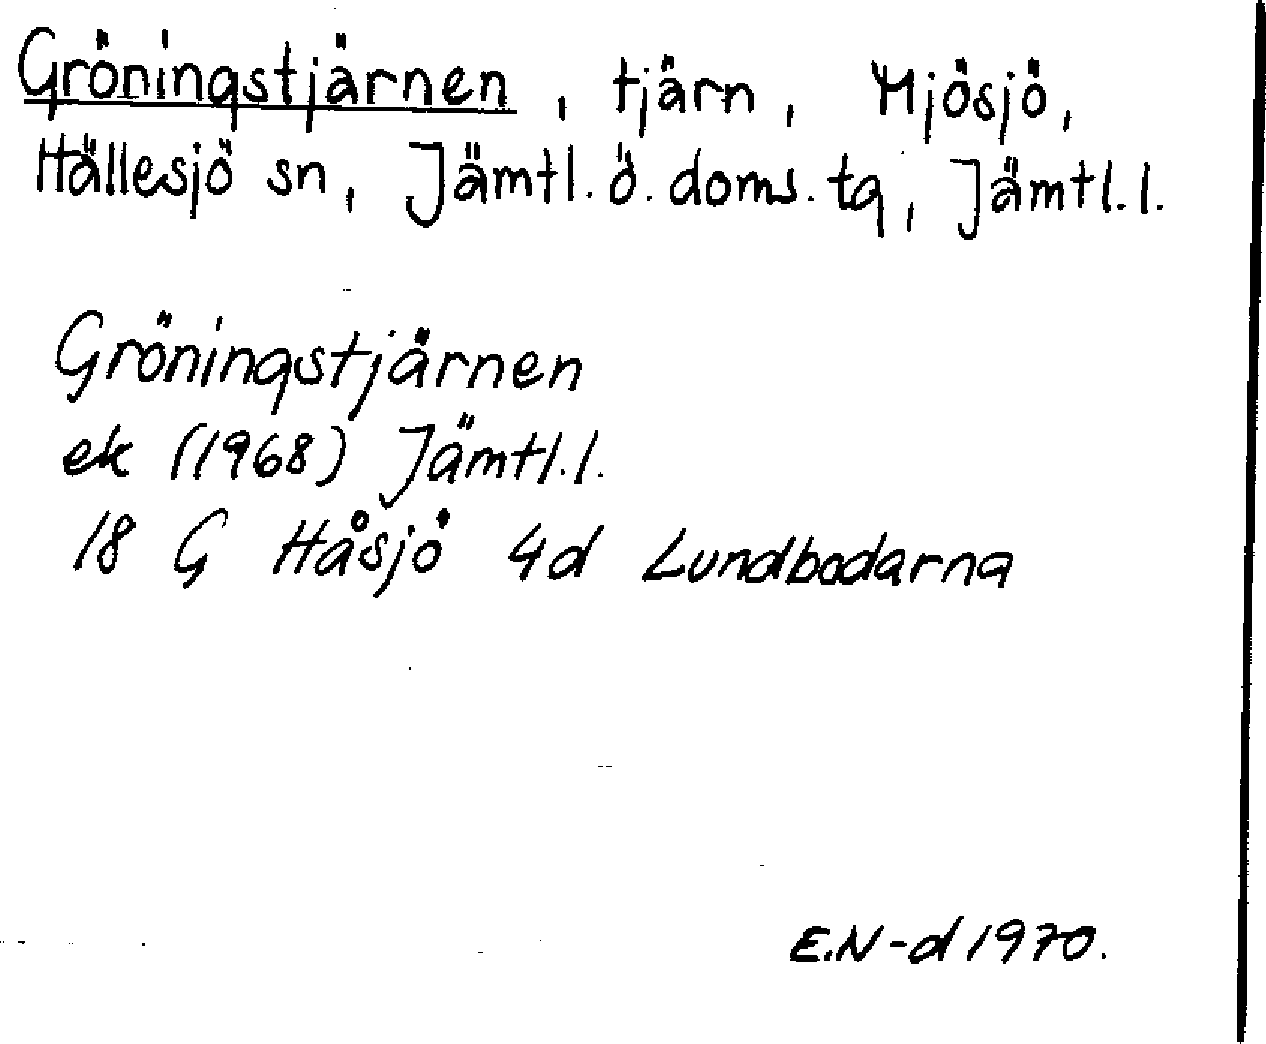 Gröningstjärnen, tjärn, Mjösjö,
Hällesjö sn, Jämtl. ö. doms. tg, Jämtl. l.
Gröningstjärnen
ek (1968) Jämtl. l.
18 G Håsjö 4d Lundbodarna
E.N-d 1970.